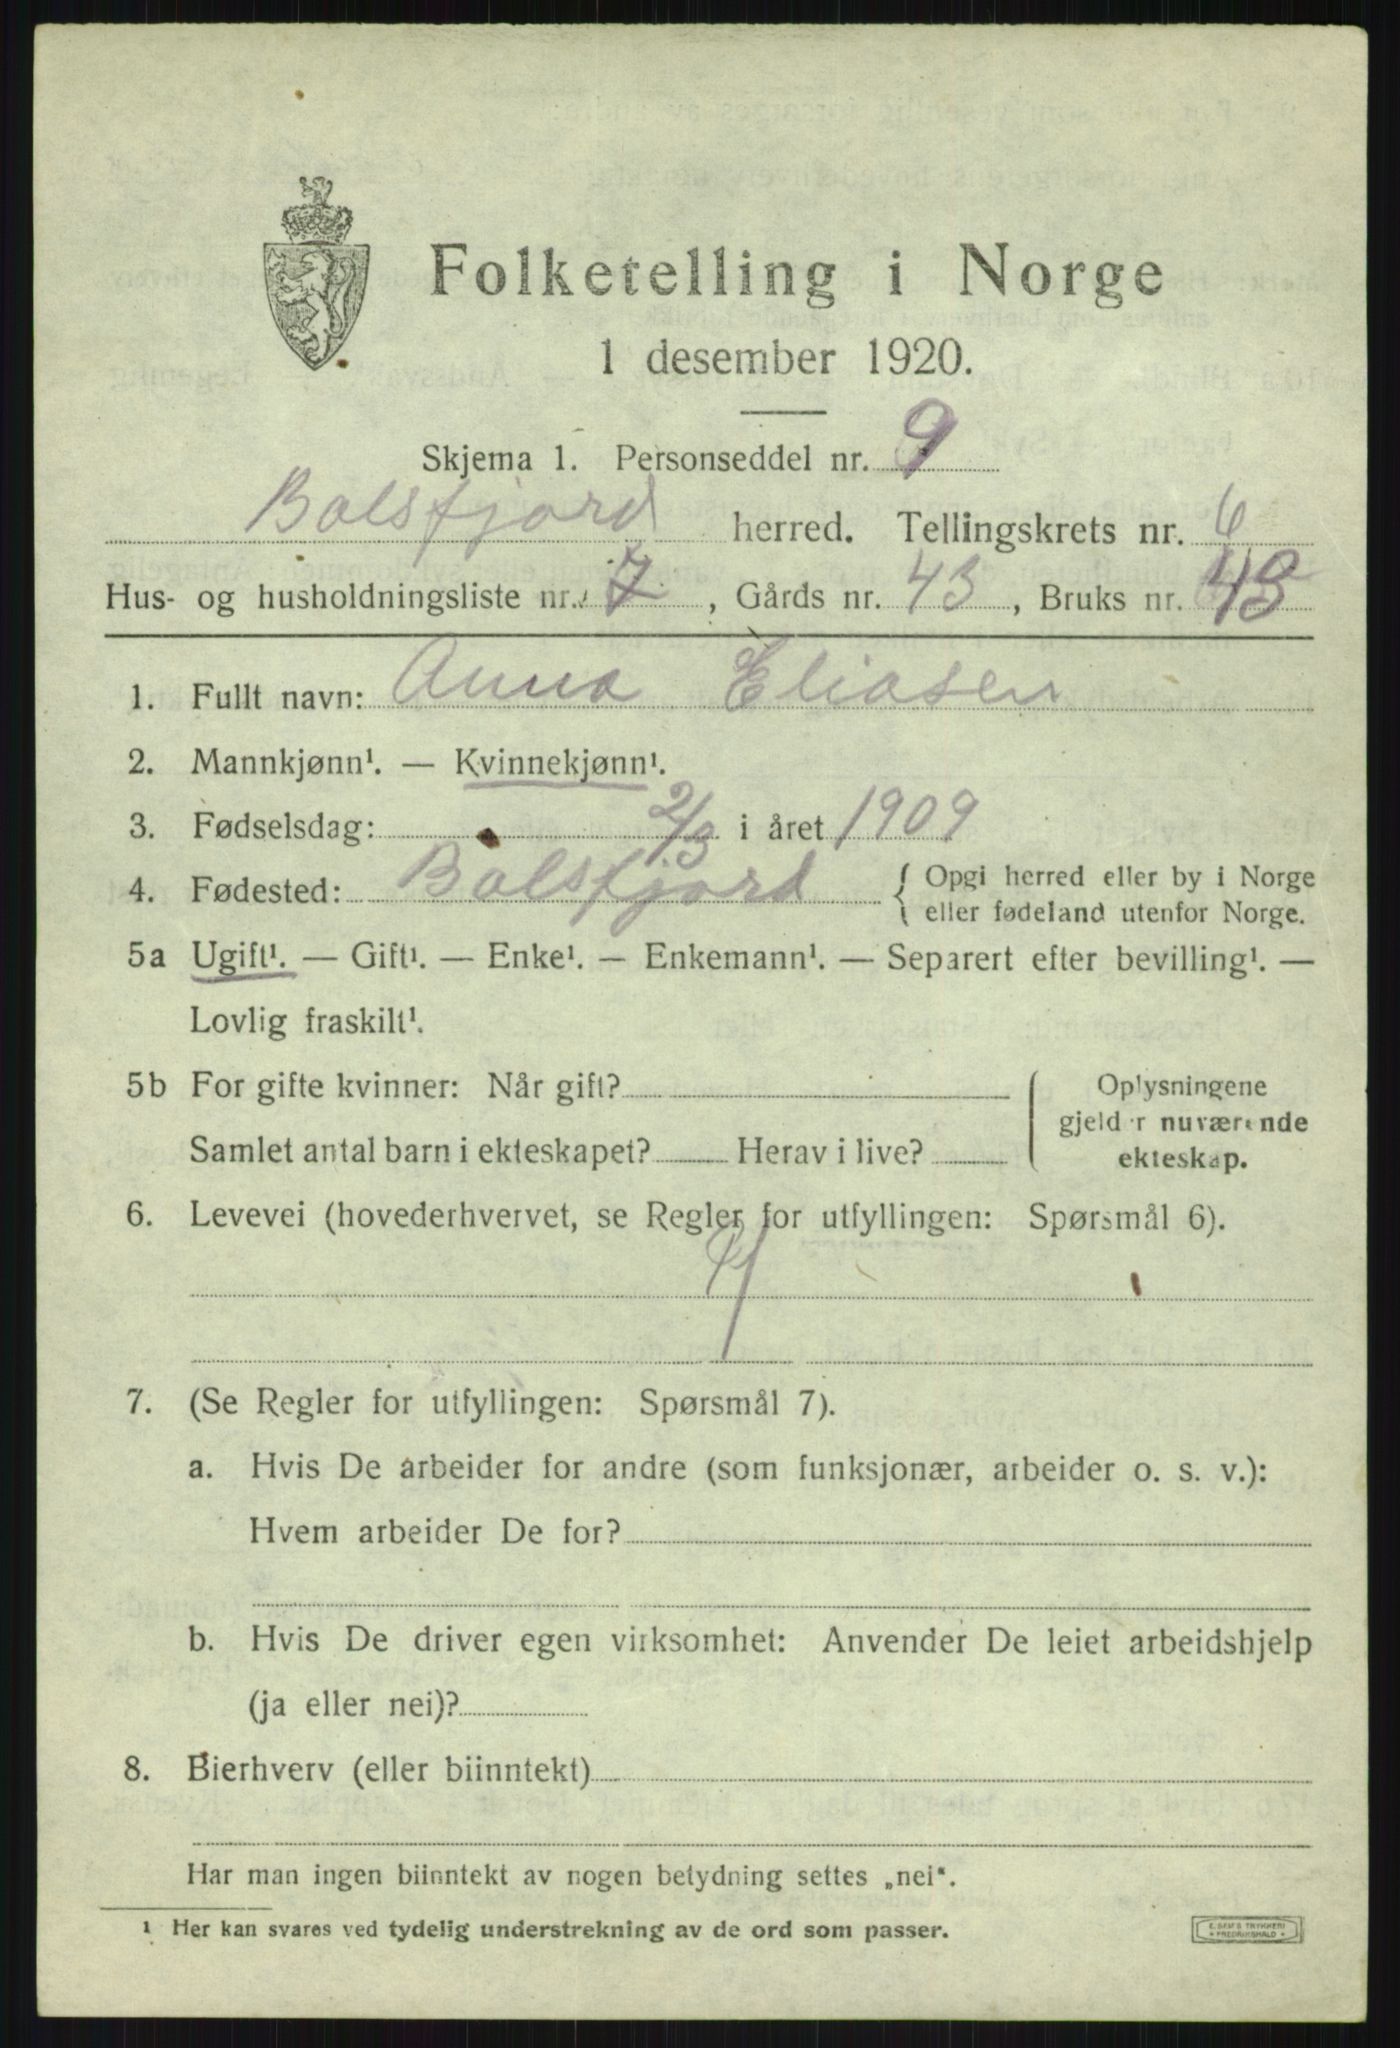 Folketelling i Norge
1 desember 1920.
Skjema 1. Personseddel nr. 9
Balsfjord herred. Tellingskrets nr. 6
Hus- og husholdningsliste nr. 7, Gårds nr. 43, Bruks nr.
1. Fullt navn: Anna Eliasen
2. Mannkjønn¹. — Kvinnekjønn¹.
3. Fødselsdag: 2/3 i året 1909
4. Fødested: Balsfjord { Opgi herred eller by i Norge
eller fødeland utenfor Norge.
5a Ugift¹. — Gift¹. — Enke¹. — Enkemann¹. — Separert efter bevilling¹. —
Lovlig fraskilt¹.
5b For gifte kvinner: Når gift?
Samlet antal barn i ekteskapet? Herav i live?
Oplysningene
gjelder nuværende
ekteskap.
6. Levevei (hovederhvervet, se Regler for utfyllingen: Spørsmål 6).
7. (Se Regler for utfyllingen: Spørsmål 7).
a. Hvis De arbeider for andre (som funksjonær, arbeider o. s. v.):
Hvem arbeider De for?
b. Hvis De driver egen virksomhet: Anvender De leiet arbeidshjelp
(ja eller nei)?
8. Bierhverv (eller biinntekt)
Har man ingen biinntekt av nogen betydning settes „nei“.
¹ Her kan svares ved tydelig understrekning av de ord som passer.
E. SEM'S TRYKKERI
FREDRIKSHALD